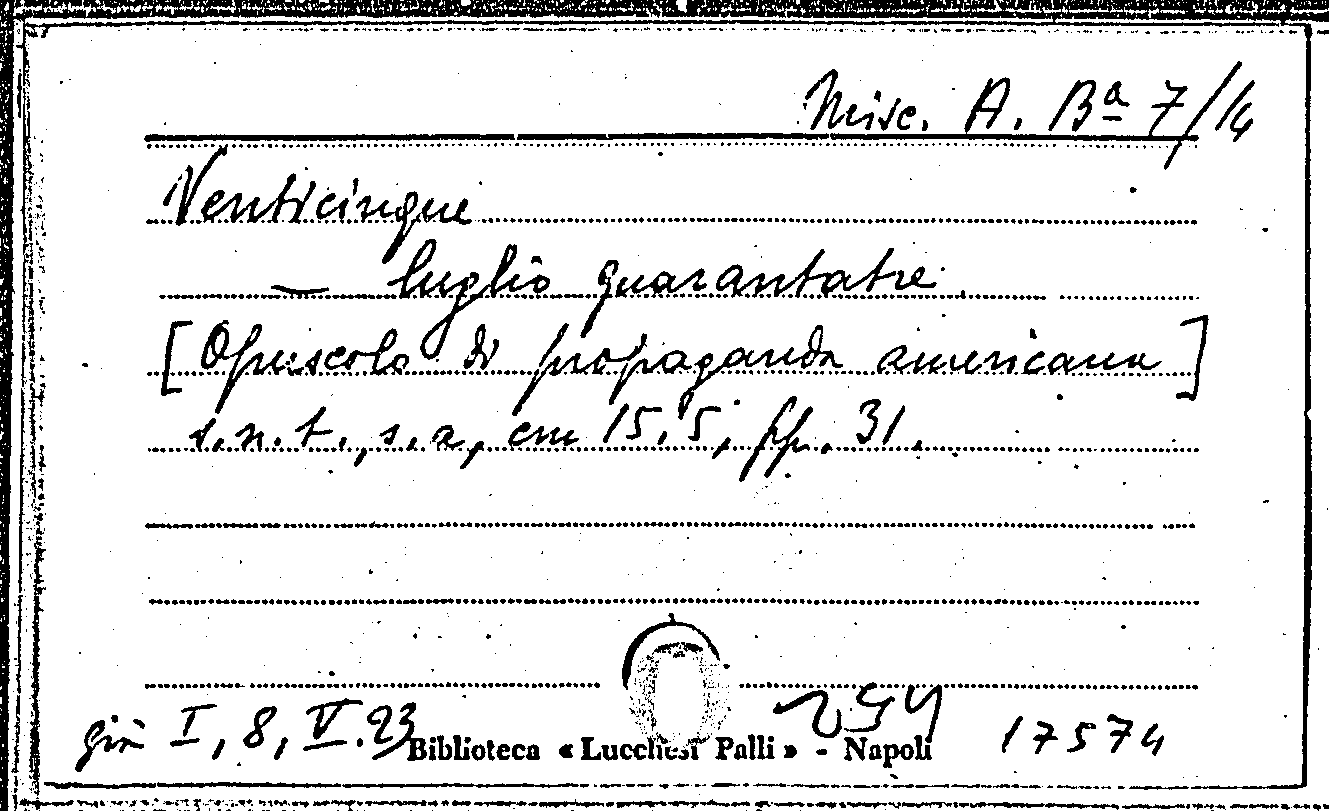 Misc. A. Bª 7/14
Venticinque
— luglio quarantatre.
[Opuscolo di propaganda americana]
s.n.t., s.a., cm 15.5, pp. 31.
già I, 8, V. 23
Biblioteca « Lucchesi Palli » - Napoli
17574